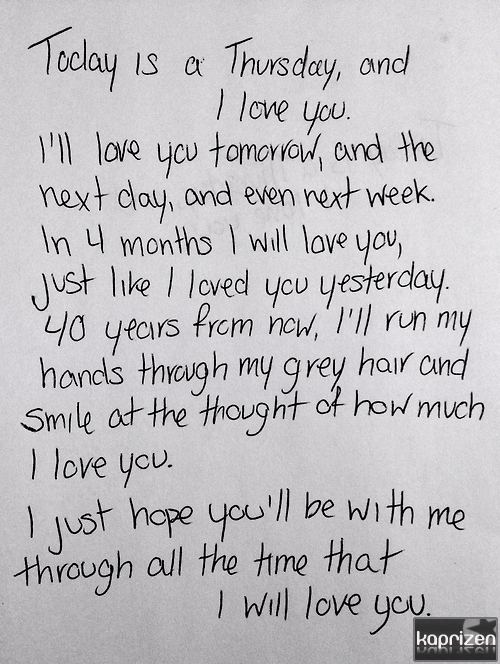 Today is a Thursday, and
I love you.
I'll love you tomorrow, and the
next day, and even next week.
In 4 months I will love you,
just like I loved you yesterday.
40 years from now, I'll run my
hands through my grey hair and
smile at the thought of how much
I love you.
I just hope you'll be with me
through all the time that
I will love you.
kaprizen